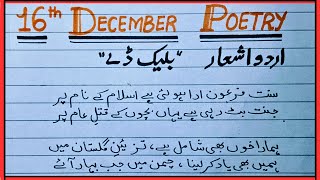 16th December Poetry
اردو اشعار "بلیک ڈے"
سنت فرعون ادا ہوئی ہے اسلام کے نام پر
جنت بٹ رہی ہے یہاں بچوں کے قتلِ عام پر
ہمارا خوں بھی شامل ہے، تزئینِ گلستان میں
ہمیں بھی یاد کر لینا، چمن میں جب بہار آئے